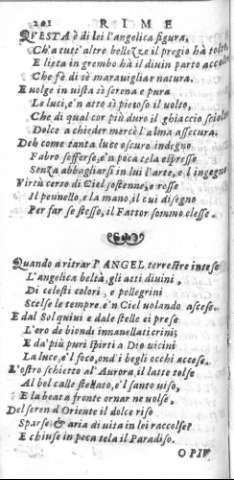 202 RIME
QVESTA è di lei l'angelica figura,
Ch'a tutt'altre bellezze il pregio hà tolto,
E lieta in grembo hà il diuin parto accolto
Che fè di sè marauigliar natura.
E uolge in uista sì serena e pura
Le luci, e'n atto sì pietoso il uolto,
Che di qual cor più duro il ghiaccio sciolto
Dolce a chieder mercè l'alma assecura.
Deh come tanta luce oscuro indegno
Fabro sofferse, e'n poca tela espresse
Senza abbagliarsi in lui l'arte, e l'ingegno
Virtù certo di Ciel sostenne, e resse
Il pennello, e la mano, il cui disegno
Per far se stesso, il Fattor sommo elesse.
Quando a ritrar l'ANGEL terrestre intese
L'angelica beltà, gli atti diuini,
Di celesti colori, e pellegrini
Scelse le tempre, e'n Ciel uolando ascese.
E dal Sol quiui e dale stelle ei prese
L'oro de biondi innanellati crini;
E da' più puri spirti a Dio uicini
La luce, e'l foco, ond'i begli occhi accese.
L'ostro schietto al'Aurora, il latte tolse
Al bel calle stellato, e'l santo uiso,
E la beata fronte ornar ne uolse.
Del seren d'Oriente il dolce riso
Sparse, & aria di uita in lei raccolse:
E chiuse in poca tela il Paradiso.
O PIV